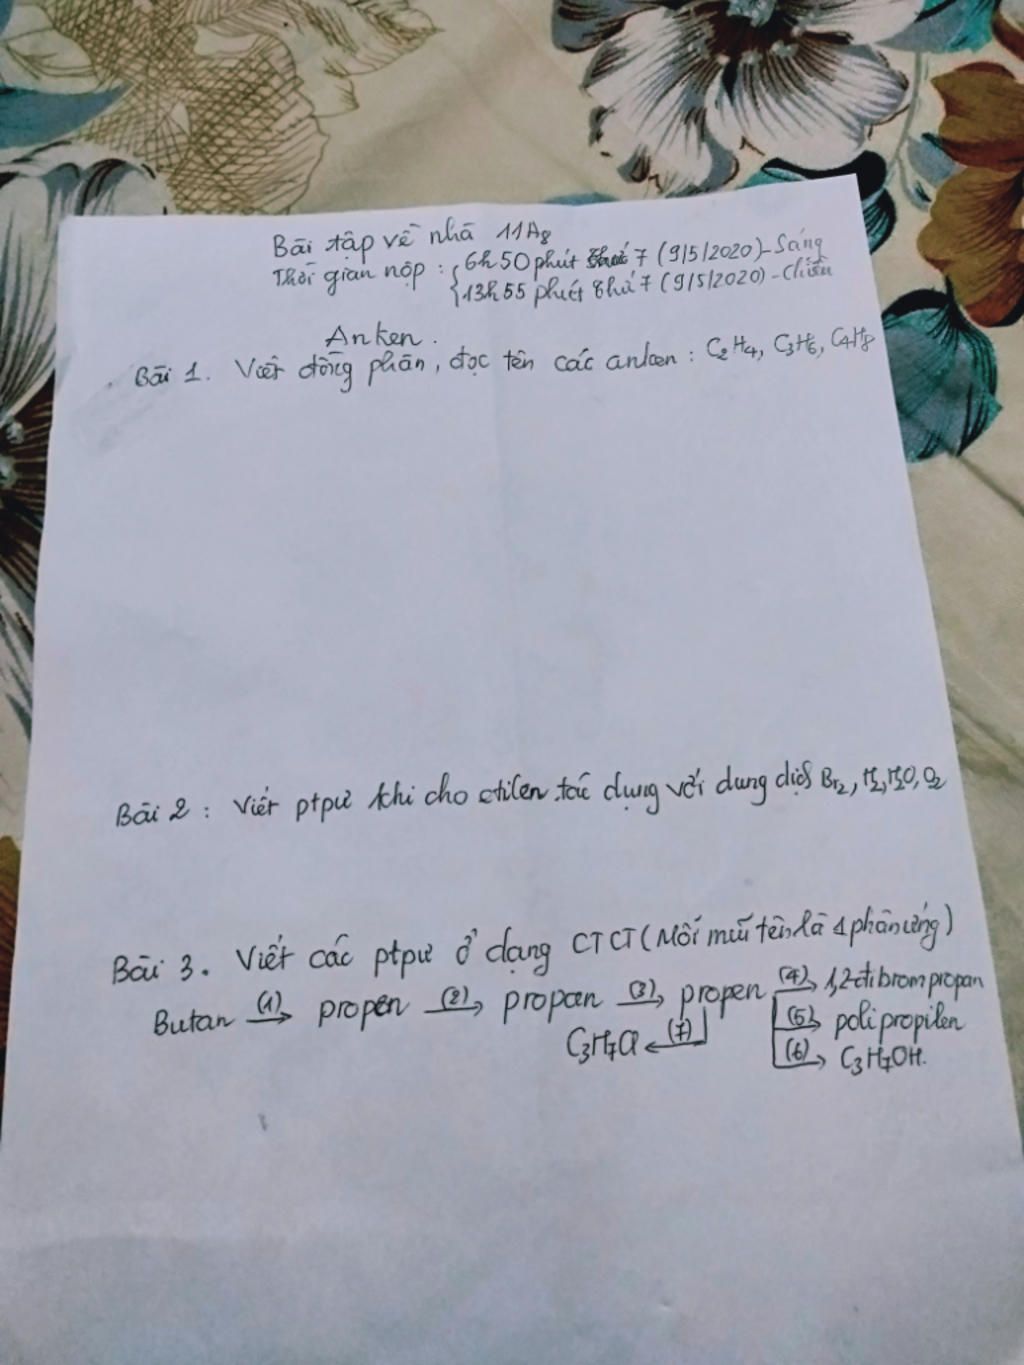 Bài tập về nhà 11A8
Thời gian nộp : { 6h50 phút thứ 7 (9/5/2020) - Sáng
{ 13h55 phút thứ 7 (9/5/2020) - Chiều
Anken.
Bài 1. Viết đồng phân, đọc tên các anken : C2H4, C3H6, C4H8
Bài 2 : Viết ptpư khi cho etilen tác dụng với dung dịch Br2, H2, H2O, O2
Bài 3. Viết các ptpư ở dạng CTCT (Mỗi mũi tên là 1 phản ứng)
Butan (1)→ propen (2)→ propan (3)→ propen (4)→ 1,2-đibrom propan
(5)→ poli propilen
C3H7Cl ←(7) (6)→ C3H7OH.